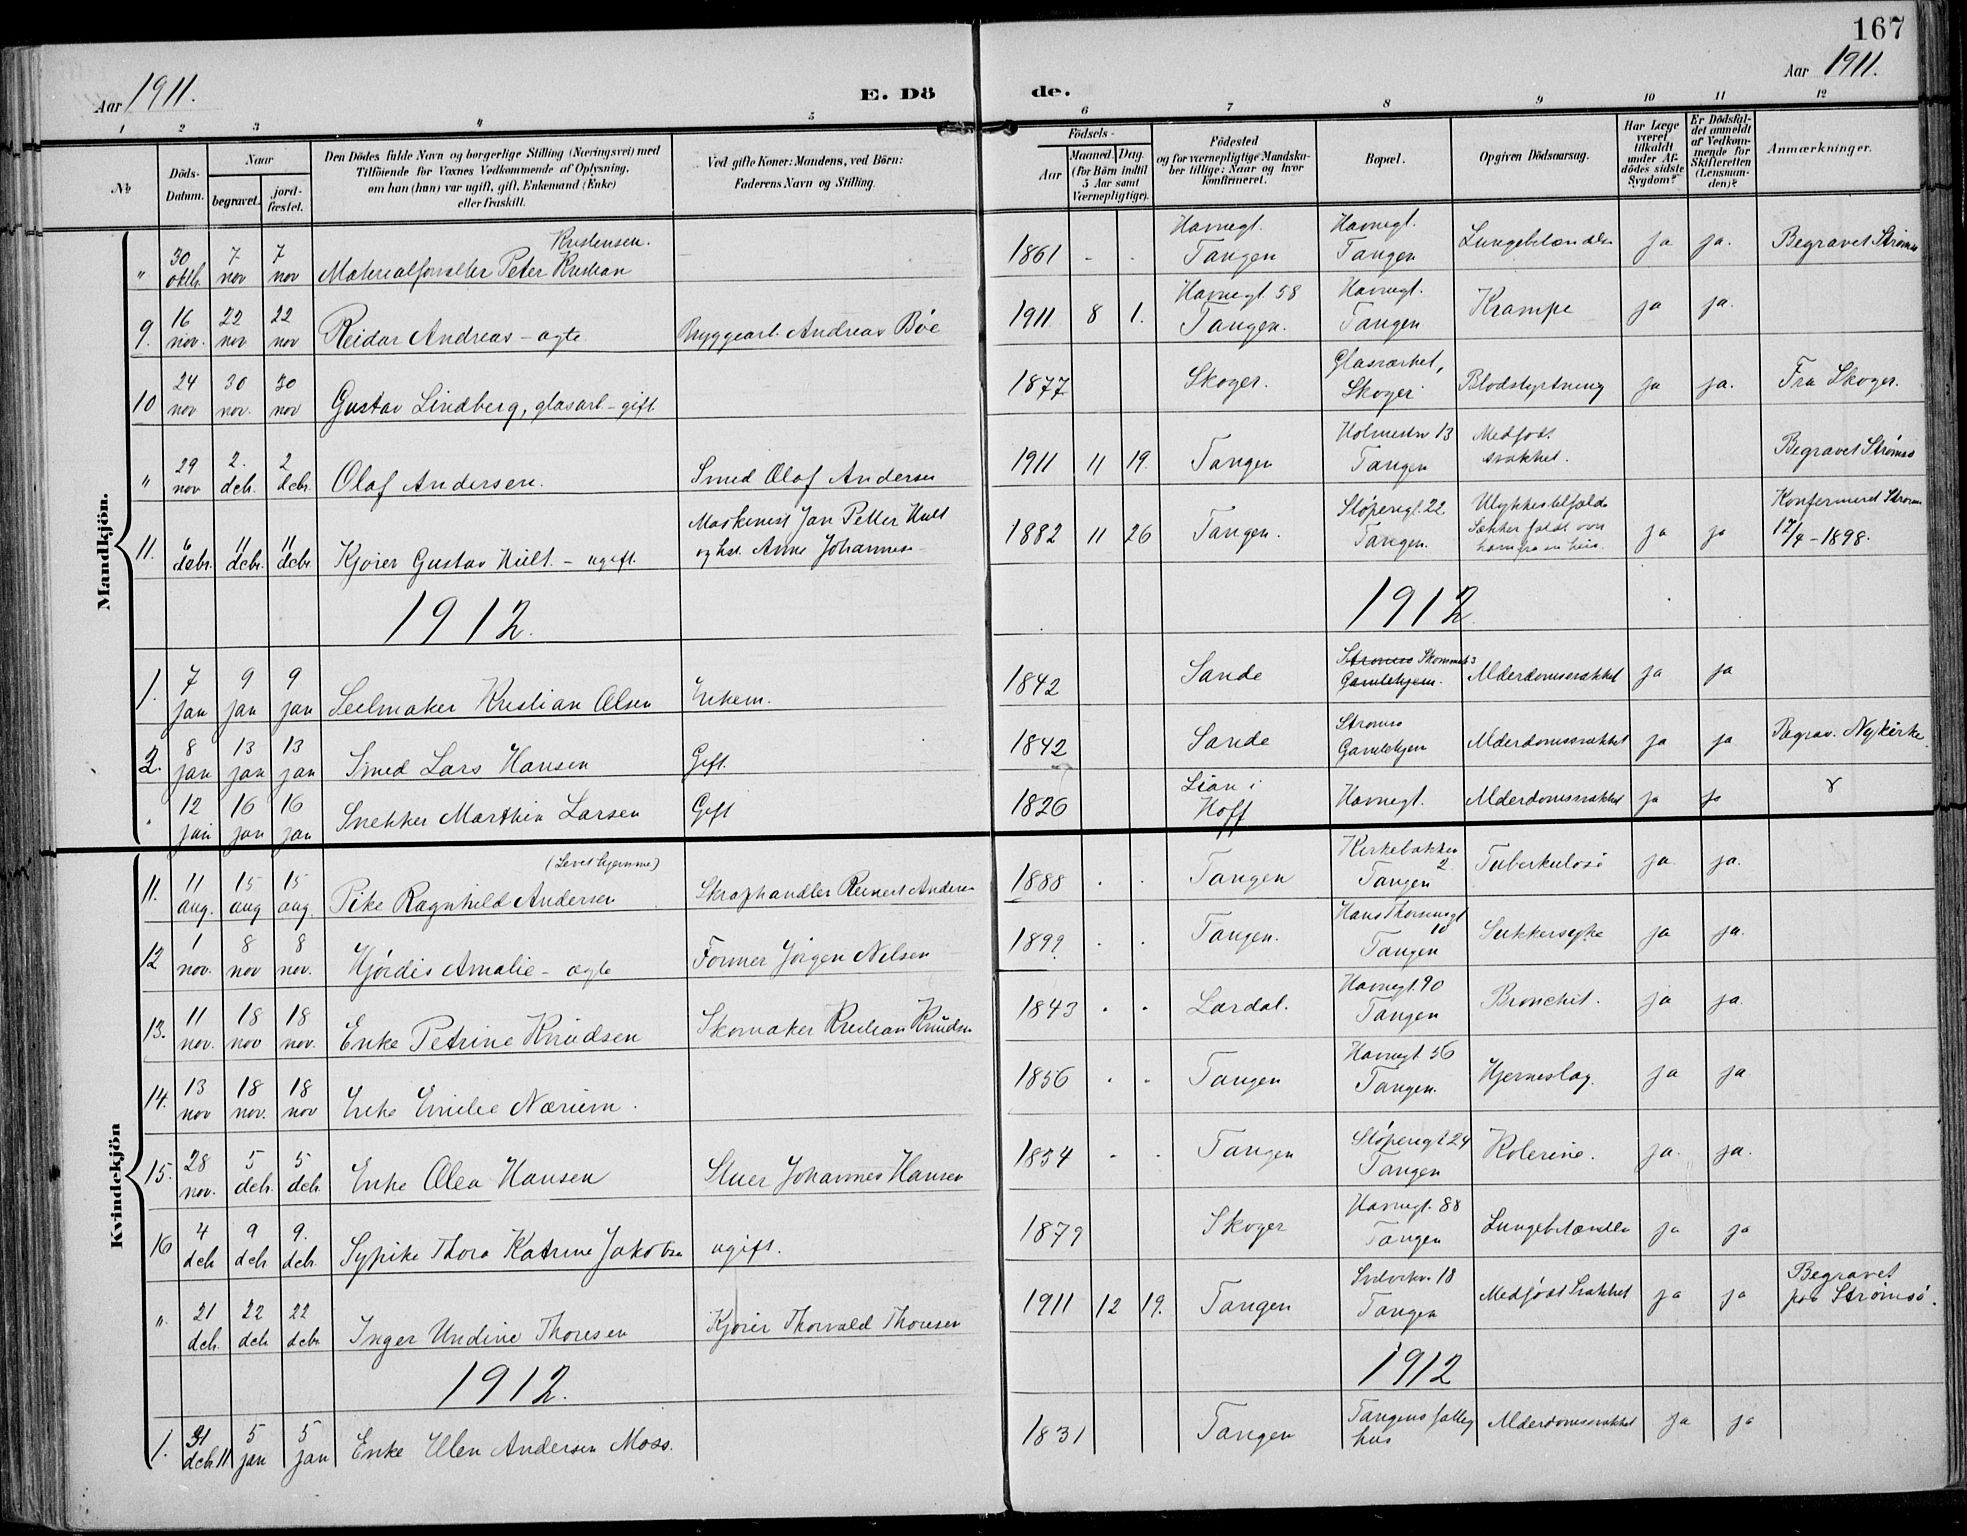 167
Aar 1911.
E. Dö
de.
Aar 1911.
1 2 3 4 5 6 7 8 9 10 11 12
№
Döds-Datum.
Naar
begravet.
jord-fæstet.
Den Dödes fulde Navn og borgerlige Stilling (Næringsvei) med
Tilföiende for Voxnes Vedkommende af Oplysning,
om han (hun) var ugift, gift, Enkemand (Enke)
eller fraskilt.
Ved gifte Koner: Mandens, ved Börn:
Faderens Navn og Stilling.
Födsels-
Aar
Maaned. Dag.
(for Börn indtil
5 Aar samt
Værnepligtige).
Födested
og for værnepligtige Mandska-
ber tillige: Naar og hvor
konfirmeret.
Bopæl.
Opgiven Dödsaarsag.
Har Læge
været
tilkaldt
under Af-
dödes sidste
Sygdom?
Er Dödsfal-
det anmeldt
af Vedkom-
mende for
Skifteretten
(Lensman-
den)?
Anmærkninger.
Mandkjön.
" 30 oktbr. 7 nov 7 nov Materialforvalter Peter Kristian Kristensen. 1861 - - Havnegt. Tangen Havnegt. Tangen Lungebetændelse ja ja. Begravet Strømsø
9. 16 nov. 22 nov 22 nov Reidar Andreas - ægte Bryggearb. Andreas Bøe 1911 8 1. Havnegt. 58 Tangen. Havnegt. Tangen Krampe ja ja.
10 24 nov 30 nov. 30 nov Gustav Lindberg, glasarb - gift. 1877 Skoger. Glasværket, Skoger Blodstyrtning ja ja. Fra Skoger.
" 29 nov 2. debr. 2 debr. Olaf Andersen. Smed Olaf Andersen 1911 11 19. Tangen Holmestr 13 Tangen Medfødt svakhet. Begravet Strømsø
11. 6 debr. 11 debr. 11 debr. Kjører Gustav Hult - ugift. Maskinist Jan Petter Hult og hst. Anne Johannese 1882 11 26 Tangen. Støperigt. 22 Tangen. Ulykkestilfælde Sækker faldt over ham fra en heis. ja ja Konfirmeret Strømsø 17/4 - 1898.
1912. 1912
1. 7 jan 9 jan 9 jan Seilmaker Kristian Olsen Enkem. 1842 Sande Strømsø Gamlehjem. Alderdomssvakhet ja ja
2. 8 jan 13 jan 13 jan Smed Lars Hansen Gift. 1842 Sande Strømsø Gamlehjem Alderdomssvakhet ja ja Begrav. Nykirke.
12 jan 16 jan 16 jan Snekker Marthin Larsen Gift 1826 Lian i Hoff Havnegt. Alderdomssvakhet ja ja
Kvindekjön
11. 11 aug. 15 aug 15 aug. Pike Ragnhild Andersen (Levet hjemme) Skraphandler Reinert Andersen 1888 . . Tangen Kirkebakken 2 Tangen Tuberkulose ja. ja.
12 1 nov. 8 nov 8 nov. Hjördis Amalie - ægte Former Jörgen Nilsen 1899. . . Tangen. Hans Thornesgt 10 Tangen Sukkersyke ja ja.
13. 11 nov. 18 nov 18 nov. Enke Petrine Knudsen Skomaker Kristian Knudsen 1843 . . Lardal. Havnegt. 90 Tangen Bronchit. ja ja.
14. 13 nov 18 nov. 18 nov Enke Emilie Nærum. 1856 . . Tangen Havnegt 56 Tangen. Hjerneslag. ja ja.
15. 28 nov. 5 debr. 5 debr. Enke Olea Hansen Stuer Johannes Hansen 1834 - . Tangen Støperigt 24 Tangen Kolerine. ja. ja.
16 4 deb 9 debr 9. debr. Sypike Thora Katrine Jakobsen ugift. 1879 Skoger Havnegt. 88 Tangen Lungebetændelse ja ja
" 21 deb. 22 deb 22 debr Inger Undine Thoresen Kjører Thorvald Thoresen 1911 12 19. Tangen 18 Tangen Medfødt Svakhet ja ja Begravet paa Strømsö.
1912. 1912
1. 31 debr. 11 5 jan 5 jan Enke Elen Andersen Moss. 1831 Tangen Tangens fattighus Alderdomssvakhet ja ja